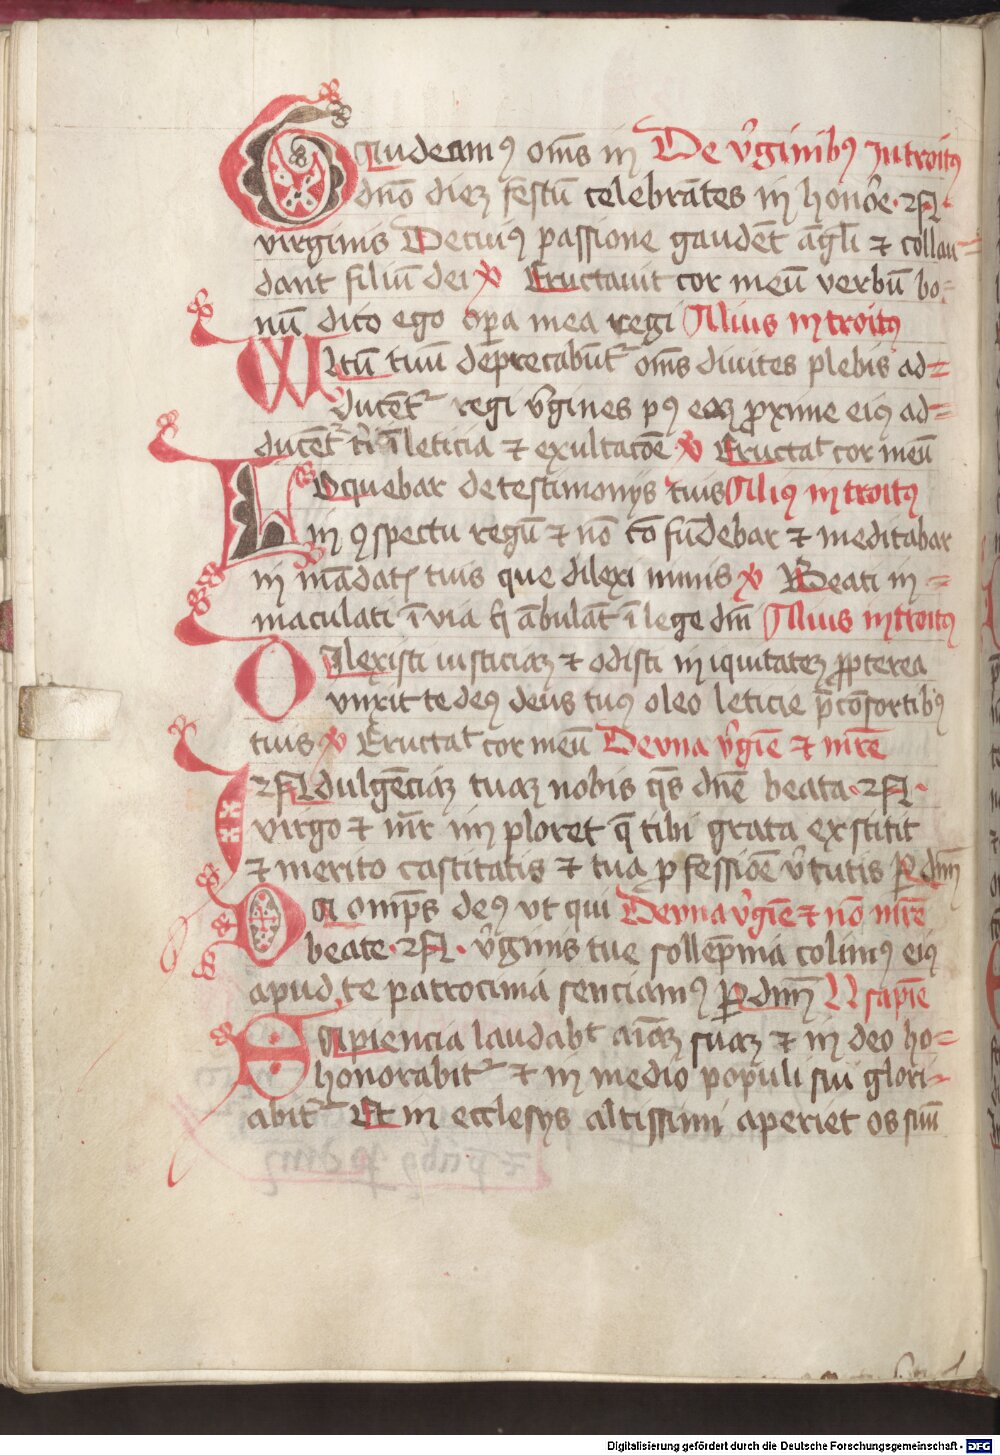 Gaudeamꝰ om̅s in De v̓ginibꝫ Introitꝰ
dn̅o dieꝫ festu̅ celebra̅tes in hono̅e · N ·
virginis De cuiꝰ passione gaude̅t a̅gl̅i et collau=
dant filiu̅ dei v̓ Eructauit cor meu̅ verbu̅ bo=
nu̅ dico ego op̅a mea regi Alius introitꝰ
Vltu̅ tuu̅ dep̅recabu̅t᷑ om̅s diuites plebis ad=
ducent᷑ regi v̓gines pꝰ eaꝝ proxime eiꝰ ad=
ducent᷑ t' i̅ leticia et exultaco̅e v̓ Eructat cor meu̅
Loquebar de testimonijs tuis Aliꝰ introitꝰ
in ꝯspectu regu̅ et no̅ co̅fu̅debar et meditabar
in ma̅datꝭ tuis que dilexi nimis v̓ Beati in=
maculati i̅ via q̅ a̅bula̅t i̅ lege dn̅i Alius introitꝰ
Dilexisti iusticiaꝫ et odisti iniquitateꝫ propterea
vnxit te deꝰ deus tuꝰ oleo leticie p̅ co̅sortibꝫ
tuis v̓ Eructat cor meu̅ De vna v̓gi̅e et m̅re
Indulge̅ciaꝫ tuaꝫ nobis q̅s dn̅e beata · N ·
virgo et m̅r imploret q̅ tibi grata exstitit
et merito castitatis et tua ꝓfessio̅e v̓tutis Per dn̅m
Da omp̅s deꝰ vt qui De vna v̓gi̅e et no̅ m̅re
beate · N · v̓ginis tue sollempnia colimꝰ eiꝰ
apud te patrocinia senciamꝰ Per dn̅m Ll sapie̅
Sapiencia laudabt ai̅aꝫ suaꝫ et in deo ho=
honorabit᷑ et in medio populi sui glori=
abit᷑ Et in ecclesijs altissimi aperiet os suu̅
Digitalisierung gefördert durch die Deutsche Forschungsgemeinschaft - DFG